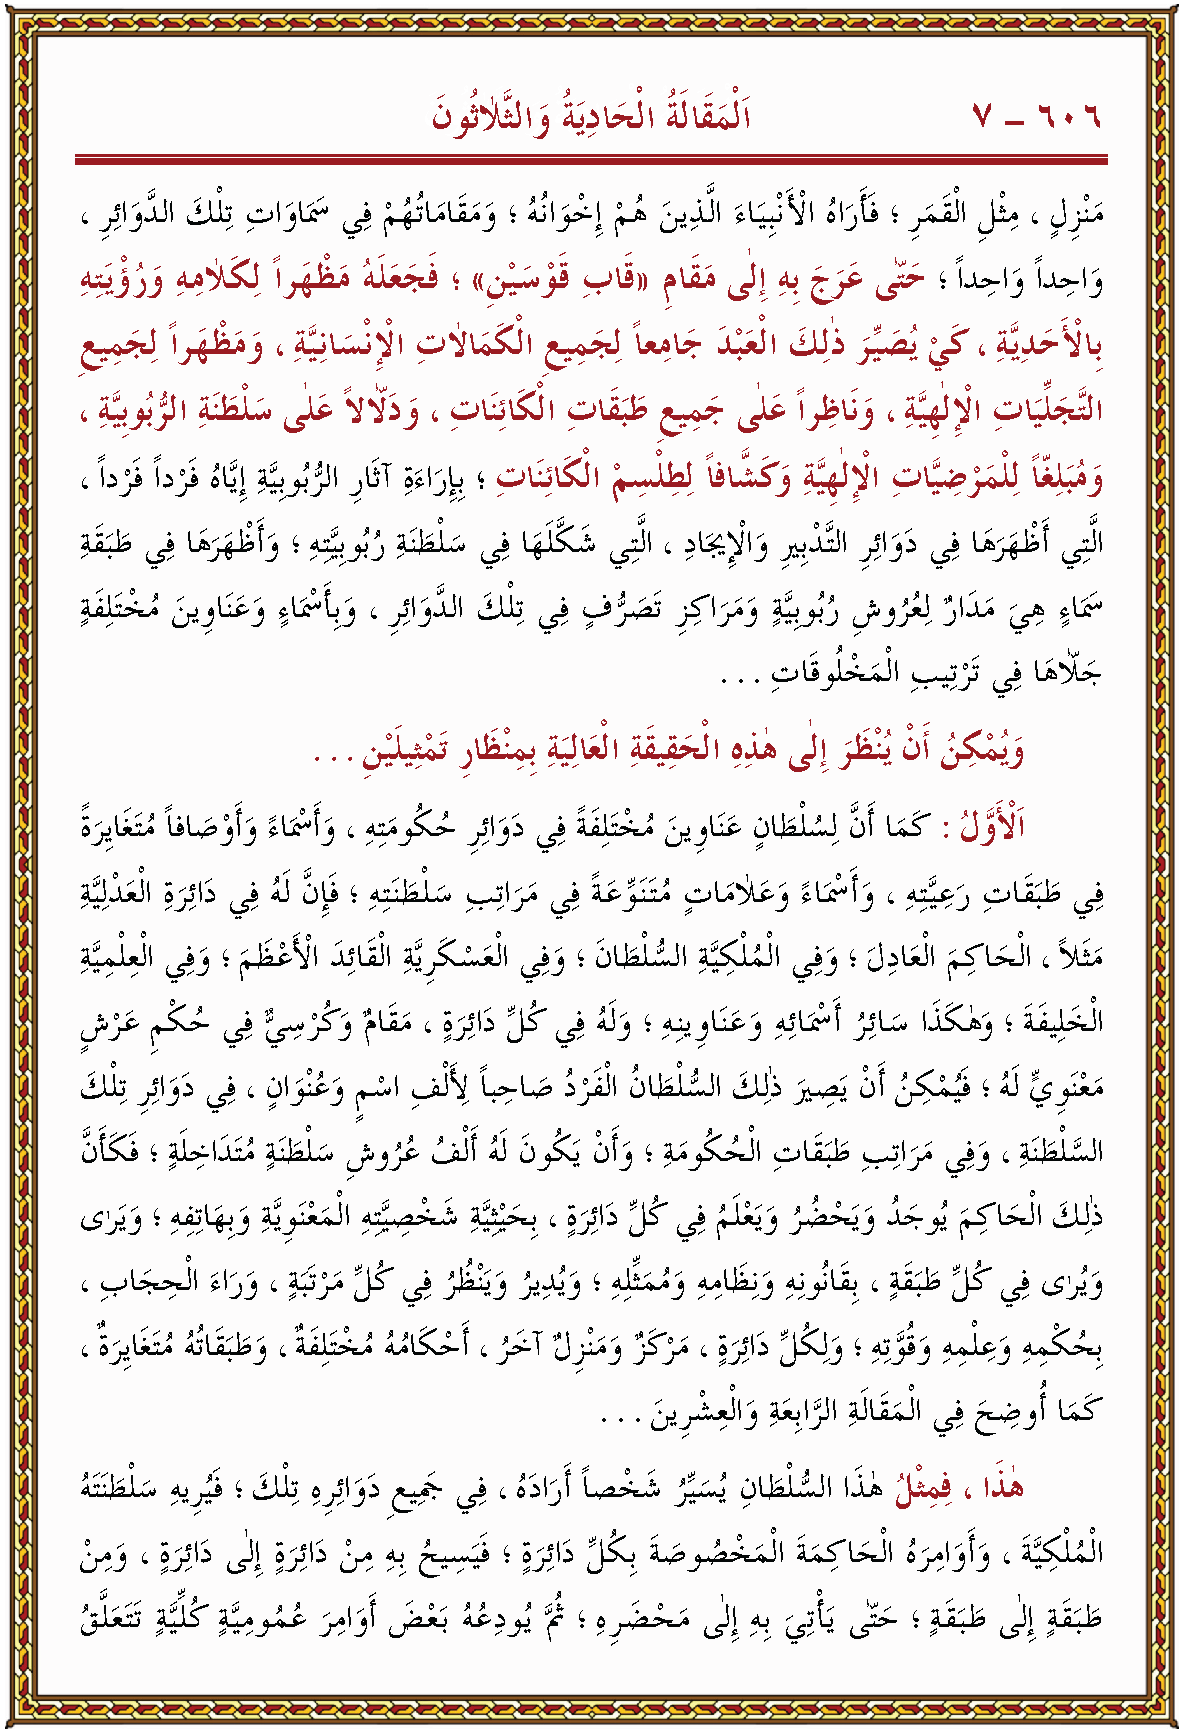 ٦٠٦ – ٧ اَلْمَقَالَةُ الْحَادِيَةُ وَالثَّلٰاثُونَ
مَنْزِلٍ ، مِثْلِ الْقَمَرِ ؛ فَأَرَاهُ الْأَنْبِيَاءَ الَّذِينَ هُمْ إِخْوَانُهُ ؛ وَمَقَامَاتُهُمْ فِي سَمَاوَاتِ تِلْكَ الدَّوَائِرِ ،
وَاحِداً وَاحِداً ؛ حَتّٰى عَرَجَ بِهِ إِلٰى مَقَامِ «قَابِ قَوْسَيْنِ» ؛ فَجَعَلَهُ مَظْهَراً لِكَلٰامِهِ وَرُؤْيَتِهِ
بِالْأَحَدِيَّةِ ، كَيْ يُصَيِّرَ ذٰلِكَ الْعَبْدَ جَامِعاً لِجَمِيعِ الْكَمَالٰاتِ الْإِنْسَانِيَّةِ ، وَمَظْهَراً لِجَمِيعِ
التَّجَلِّيَاتِ الْإِلٰهِيَّةِ ، وَنَاظِراً عَلٰى جَمِيعِ طَبَقَاتِ الْكَائِنَاتِ ، وَدَلّٰالاً عَلٰى سَلْطَنَةِ الرُّبُوبِيَّةِ ،
وَمُبَلِّغاً لِلْمَرْضِيَّاتِ الْإِلٰهِيَّةِ وَكَشَّافاً لِطِلْسِمْ الْكَائِنَاتِ ؛ بِإِرَاءَةِ آثَارِ الرُّبُوبِيَّةِ إِيَّاهُ فَرْداً فَرْداً ،
الَّتِي أَظْهَرَهَا فِي دَوَائِرِ التَّدْبِيرِ وَالْإِيجَادِ ، الَّتِي شَكَّلَهَا فِي سَلْطَنَةِ رُبُوبِيَّتِهِ ؛ وَأَظْهَرَهَا فِي طَبَقَةِ
سَمَاءٍ هِيَ مَدَارٌ لِعُرُوشِ رُبُوبِيَّةٍ وَمَرَاكِزِ تَصَرُّفٍ فِي تِلْكَ الدَّوَائِرِ ، وَبِأَسْمَاءٍ وَعَنَاوِينَ مُخْتَلِفَةٍ
جَلّٰاهَا فِي تَرْتِيبِ الْمَخْلُوقَاتِ . . .
وَيُمْكِنُ أَنْ يُنْظَرَ إِلٰى هٰذِهِ الْحَقِيقَةِ الْعَالِيَةِ بِمِنْظَارِ تَمْثِيلَيْنِ . . .
اَلْأَوَّلُ : كَمَا أَنَّ لِسُلْطَانٍ عَنَاوِينَ مُخْتَلِفَةً فِي دَوَائِرِ حُكُومَتِهِ ، وَأَسْمَاءً وَأَوْصَافاً مُتَغَايِرَةً
فِي طَبَقَاتِ رَعِيَّتِهِ ، وَأَسْمَاءً وَعَلٰامَاتٍ مُتَنَوِّعَةً فِي مَرَاتِبِ سَلْطَنَتِهِ ؛ فَإِنَّ لَهُ فِي دَائِرَةِ الْعَدْلِيَّةِ
مَثَلاً ، الْحَاكِمَ الْعَادِلَ ؛ وَفِي الْمُلْكِيَّةِ السُّلْطَانَ ؛ وَفِي الْعَسْكَرِيَّةِ الْقَائِدَ الْأَعْظَمَ ؛ وَفِي الْعِلْمِيَّةِ
الْخَلِيفَةَ ؛ وَهٰكَذَا سَائِرُ أَسْمَائِهِ وَعَنَاوِينِهِ ؛ وَلَهُ فِي كُلِّ دَائِرَةٍ ، مَقَامٌ وَكُرْسِيٌّ فِي حُكْمِ عَرْشٍ
مَعْنَوِيٍّ لَهُ ؛ فَيُمْكِنُ أَنْ يَصِيَر ذٰلِكَ السُّلْطَانُ الْفَرْدُ صَاحِباً لِأَلْفِ اسْمٍ وَعُنْوَانٍ ، فِي دَوَائِرِ تِلْكَ
السَّلْطَنَةِ ، وَفِي مَرَاتِبِ طَبَقَاتِ الْحُكُومَةِ ؛ وَأَنْ يَكُونَ لَهُ أَلْفُ عُرُوشِ سَلْطَنَةٍ مُتَدَاخِلَةٍ ؛ فَكَأَنَّ
ذٰلِكَ الْحَاكِمَ يُوجَدُ وَيَحْضُرُ وَيَعْلَمُ فِي كُلِّ دَائِرَةٍ ، بِحَيْثِيَّةِ شَخْصِيَّتِهِ الْمَعْنَوِيَّةِ وَبِهَاتِفِهِ ؛ وَيَرٰى
وَيُرٰى فِي كُلِّ طَبَقَةٍ ، بِقَانُونِهِ وَنِظَامِهِ وَمُمَثِّلِهِ ؛ وَيُدِيرُ وَيَنْظُرُ فِي كُلِّ مَرْتَبَةٍ ، وَرَاءَ الْحِجَابِ ،
بِحُكْمِهِ وَعِلْمِهِ وَقُوَّتِهِ ؛ وَلِكُلِّ دَائِرَةٍ ، مَرْكَزٌ وَمَنْزِلٌ آخَرُ ، أَحْكَامُهُ مُخْتَلِفَةٌ ، وَطَبَقَاتُهُ مُتَغَايِرَةٌ ،
كَمَا أُوضِحَ فِي الْمَقَالَةِ الرَّابِعَةِ وَالْعِشْرِينَ . . .
هٰذَا ، فِمِثْلُ هٰذَا السُّلْطَانِ يُسَيِّرُ شَخْصاً أَرَادَهُ ، فِي جَمِيعِ دَوَائِرِهِ تِلْكَ ؛ فَيُرِيهِ سَلْطَنَتَهُ
الْمُلْكِيَّةَ ، وَأَوَامِرَهُ الْحَاكِمَةَ الْمَخْصُوصَةَ بِكُلِّ دَائِرَةٍ ؛ فَيَسِيحُ بِهِ مِنْ دَائِرَةٍ إِلٰى دَائِرَةٍ ، وَمِنْ
طَبَقَةٍ إِلٰى طَبَقَةٍ ؛ حَتّٰى يَأْتِيَ بِهِ إِلٰى مَحْضَرِهِ ؛ ثُمَّ يُودِعُهُ بَعْضَ أَوَامِرَ عُمُومِيَّةٍ كُلِّيَّةٍ تَتَعَلَّقُ